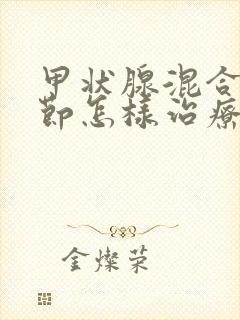 甲状腺混合
節怎樣治療
金燦榮